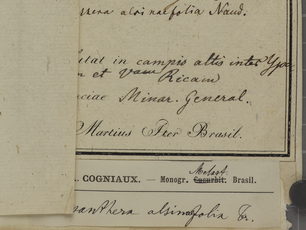 alsinaefolia Naud.
itat in campis altis inter Ypa
n et Vau Ricam
nciae Minar. General.
Martius Iter Brasil.
Melast.
. COGNIAUX. — Monogr. Cucurbit. Brasil.
anthera alsinaefolia Tr.